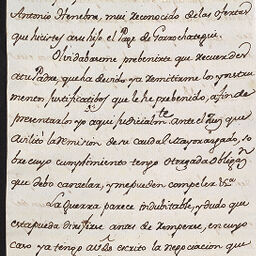 Antonio Henebra, muy reconocido de las ofertas
que hicistes a su hijo el Page de Gorrochategui.
Olvidabaseme prebenirte que recuerdes
a tu Padre, que ha devido ya remitirme los ynstru
mentos justificatibos que le he prebenido, afin de
presentarlos yo aqui judicialmte ante el Juez que
avilitò la remision de su caudal Mayorazgado, so
bre cuyo cumplimiento tengo otorgada obligon
que debo canzelar, y me pueden compeler &ca
La Guerra parece indubitable, y dudo que
esta pueda dirijirse antes de romperse, en cuyo
caso ya tengo escrito la negociacion que